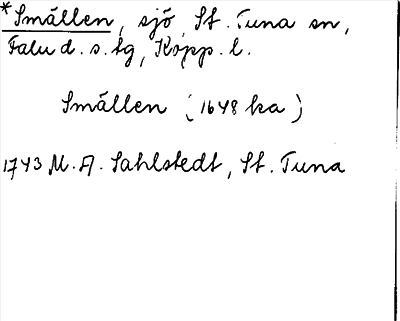 *Smällen, sjö, St. Tuna sn,
Falu d. s. tg, Kopp. l.
Smällen (1648 ka)
1743 M. A. Sahlstedt, St. Tuna